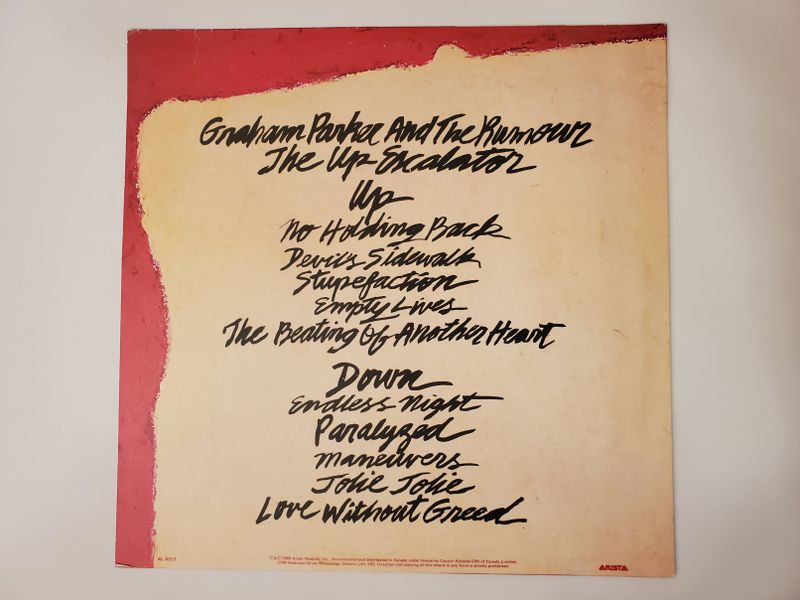 Graham Parker And The Rumour
The Up Escalator
Up
No Holding Back
Devil's Sidewalk
Stupefaction
Empty Lives
The Beating Of Another Heart
Down
Endless Night
Paralyzed
Maneuvers
Jolie Jolie
Love Without Greed
AL 9517
1980 Arista Records, Inc. Manufactured and Distributed in Canada under license by Capitol Records-EMI of Canada Limited,
3109 American Drive, Mississauga, Ontario L4V 1B2. Unauthorized copying of this record in any form is strictly prohibited.
ARISTA